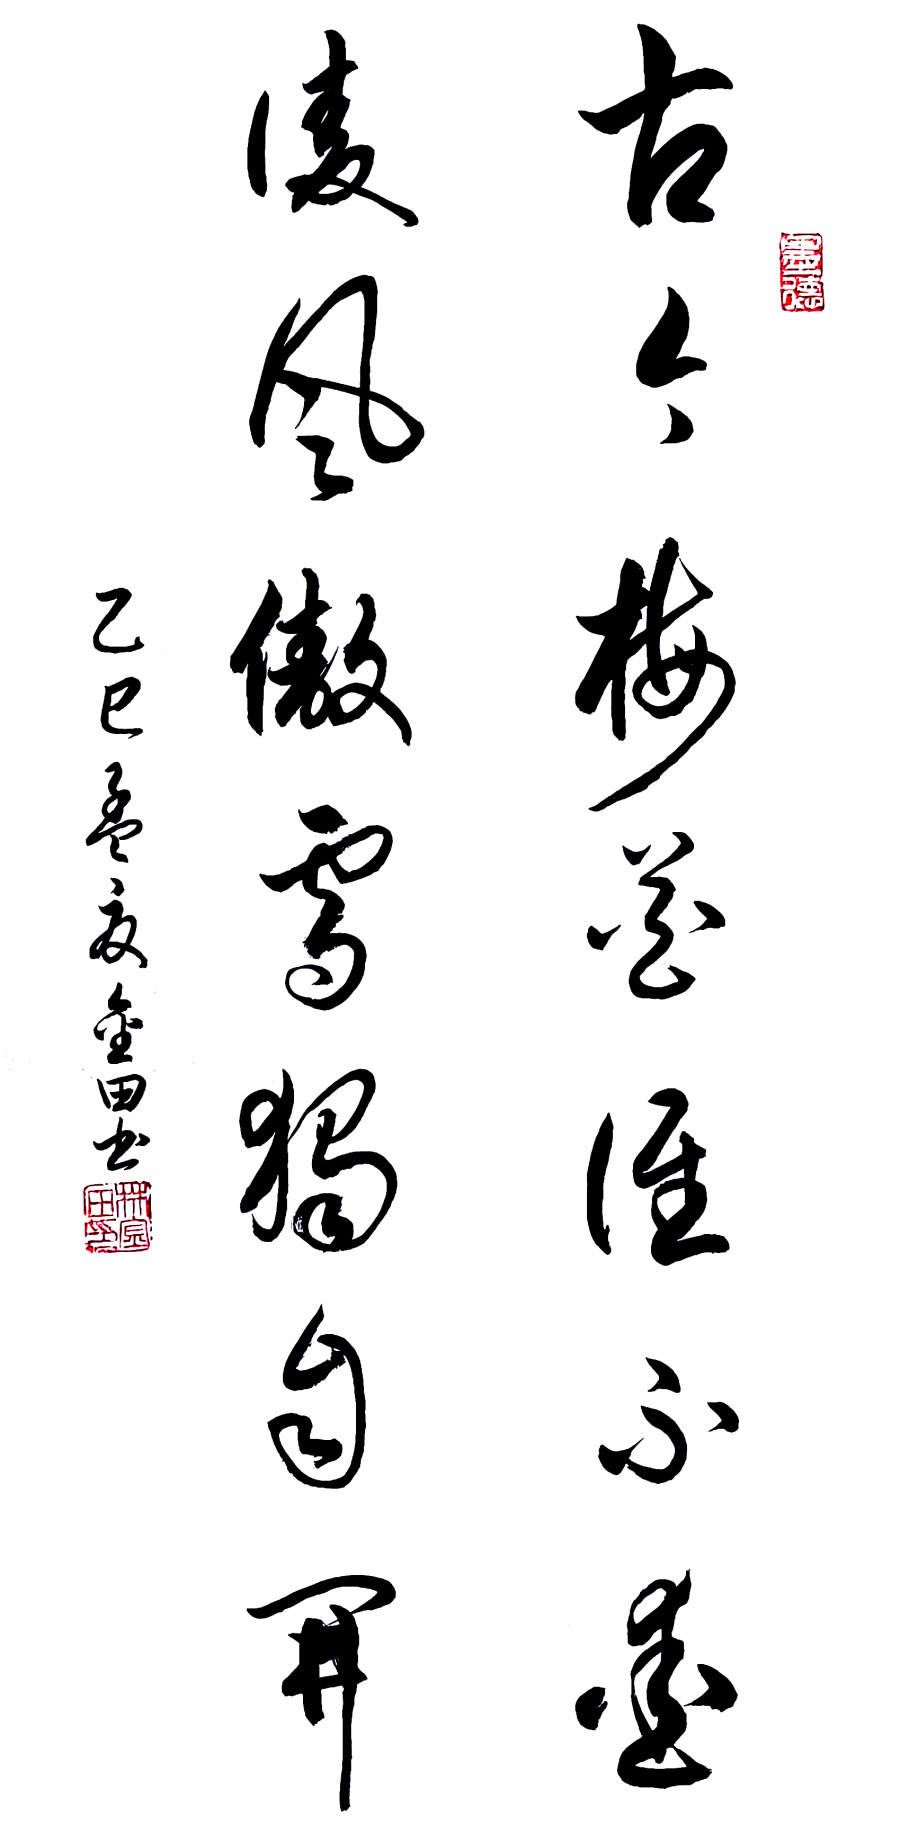 古今梅花谁不爱
凌风傲雪独自开
乙巳孟夏金田书